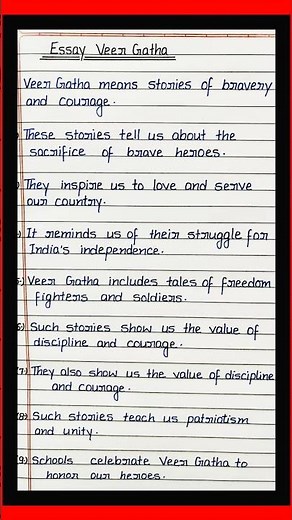 Essay Veer Gatha
Veer Gatha means stories of bravery
and courage.
These stories tell us about the
sacrifice of brave heroes.
They inspire us to love and serve
our country.
It reminds us of their struggle for
India's independence.
5) Veer Gatha includes tales of freedom
fighters and soldiers.
6) Such stories show us the value of
discipline and courage.
(7) They also show us the value of discipline
and courage.
(8) Such stories teach us patriotism
and unity.
(9) Schools celebrate Veer Gatha to
honor our heroes.